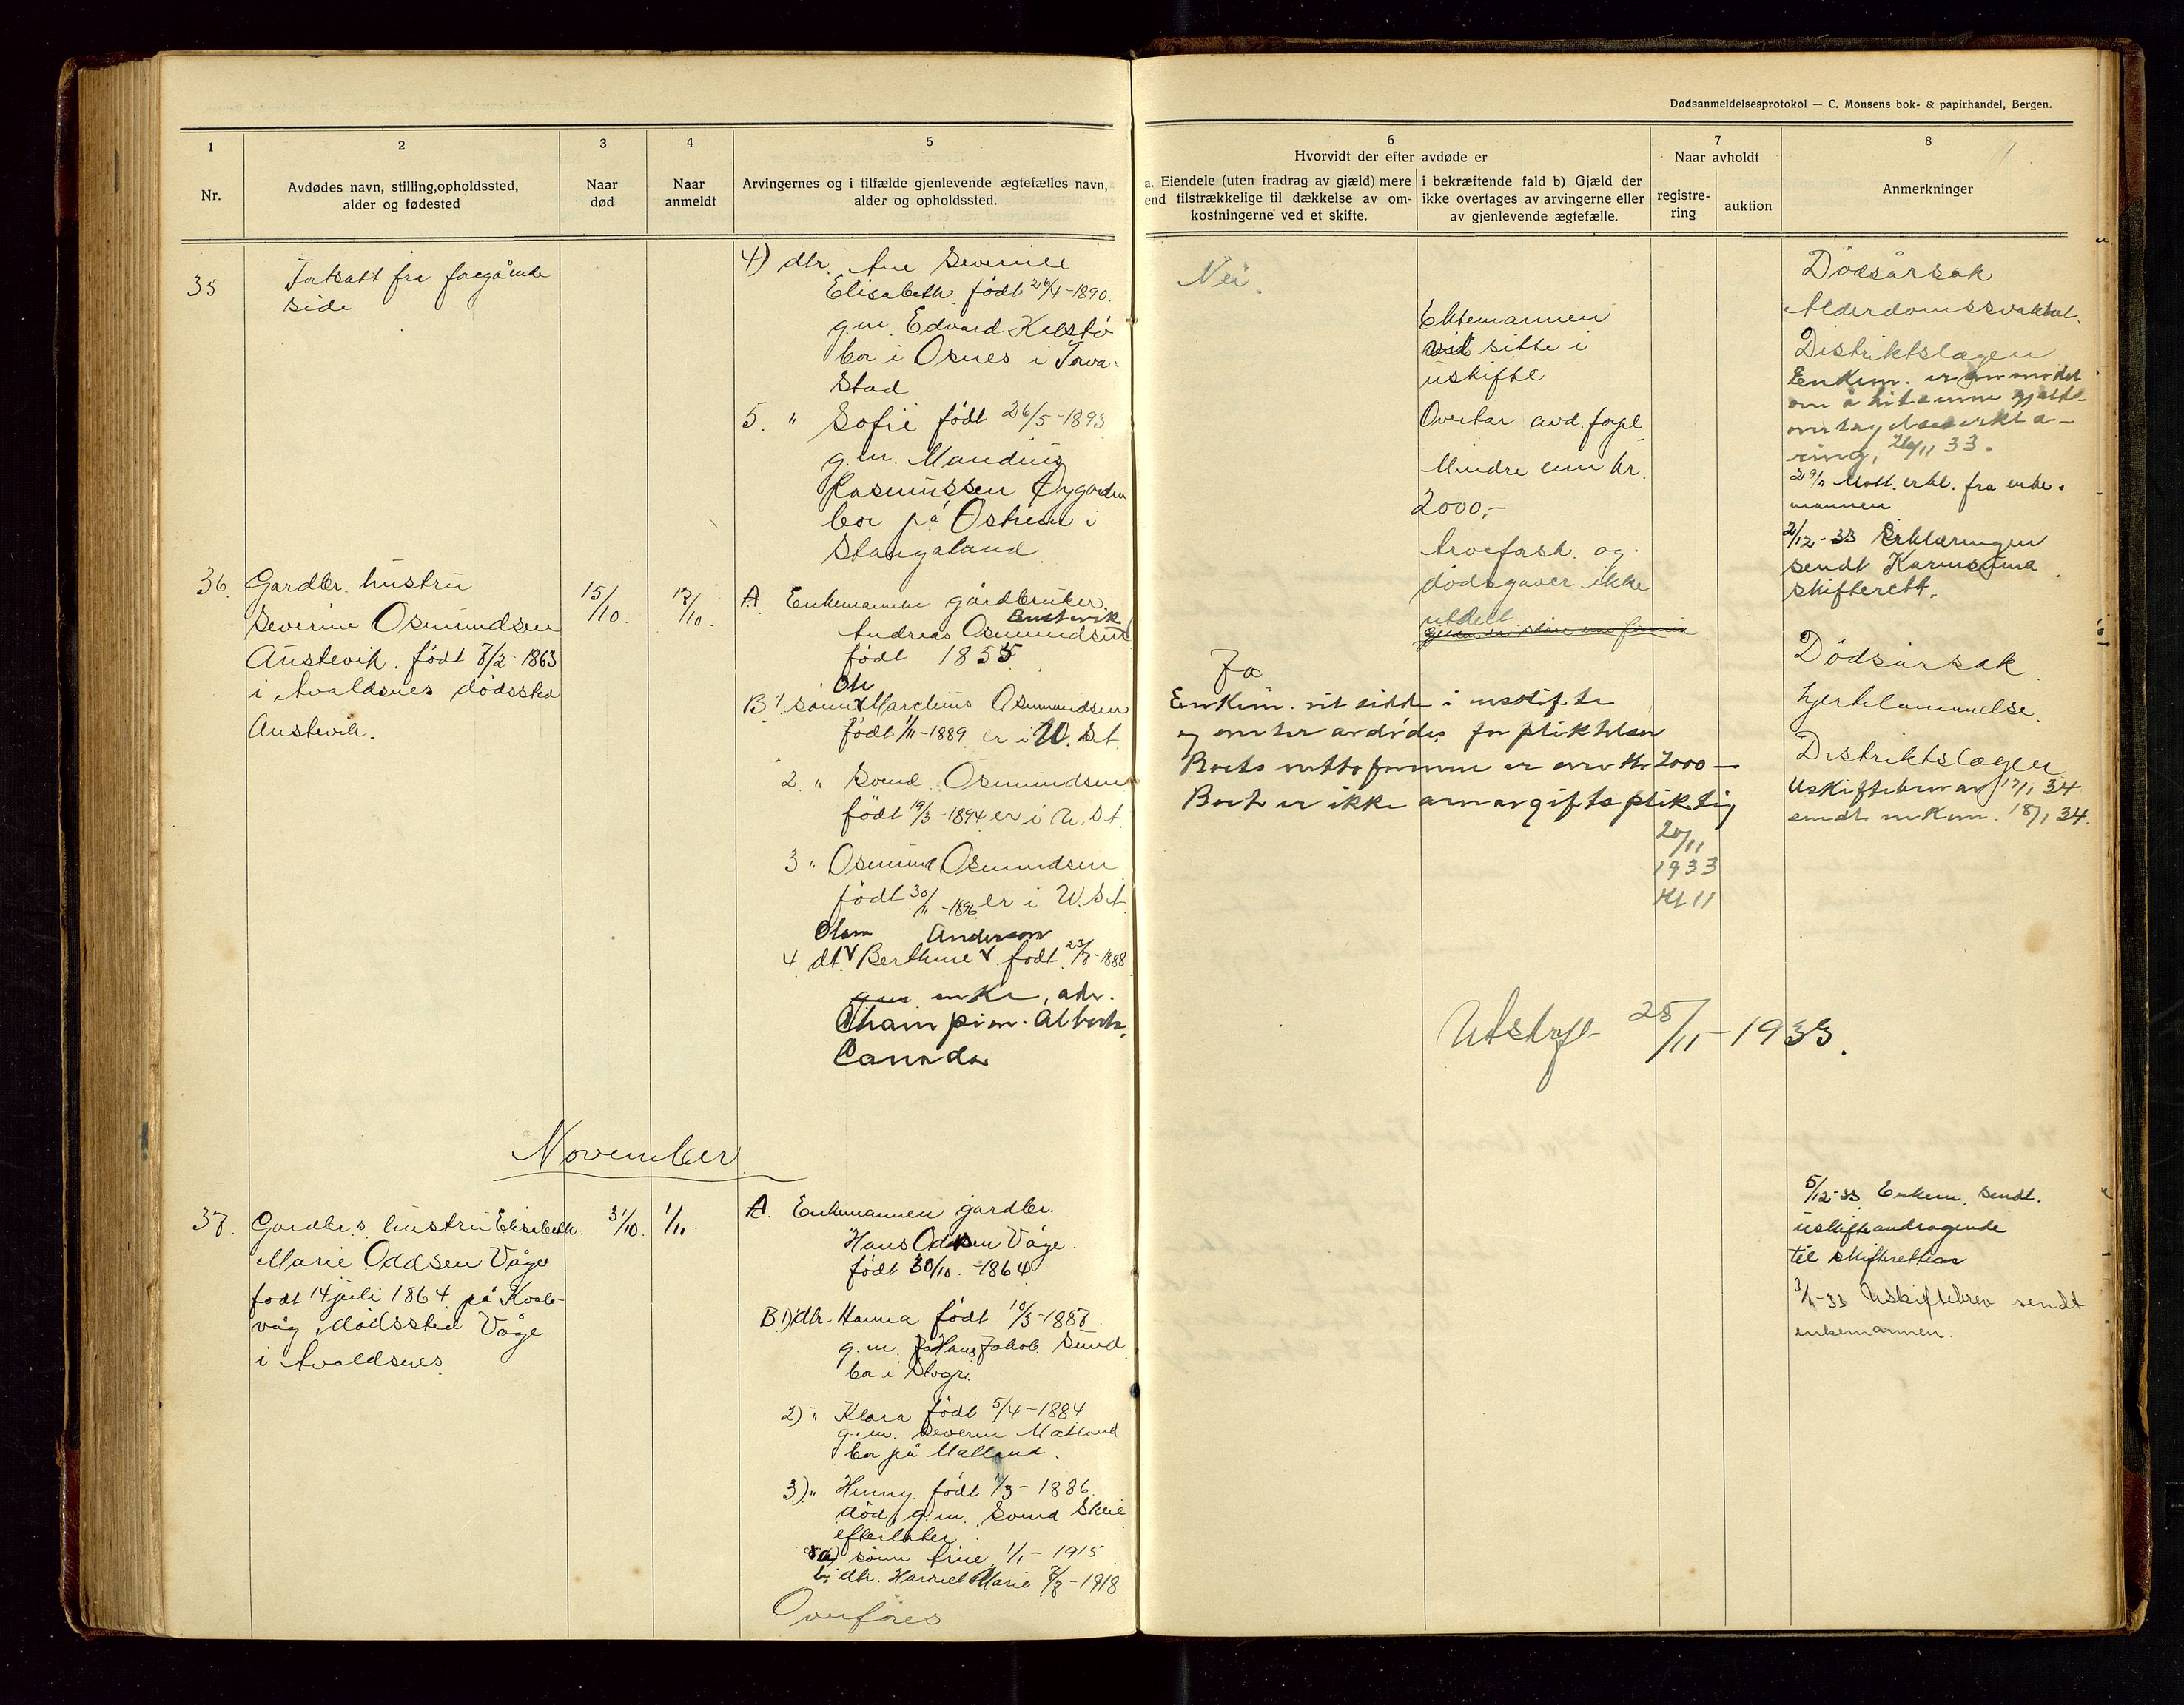 Dødsanmeldelsesprotokol — C. Monsens bok- & papirhandel, Bergen.
1
Nr.
2
Avdødes navn, stilling, opholdssted,
alder og fødested
3
Naar
død
4
Naar
anmeldt
5
Arvingernes og i tilfælde gjenlevende ægtefælles navn,
alder og opholdssted.
6
Hvorvidt der efter avdøde er
a. Eiendele (uten fradrag av gjæld) mere
end tilstrækkelige til dækkelse av om-
kostningerne ved et skifte.
i bekræftende fald b) Gjæld der
ikke overtages av arvingerne eller
av gjenlevende ægtefælle.
7
Naar avholdt
registre-
ring
auktion
8
Anmerkninger
35
Fortsatt fra foregående
side
4) dtr. Ane Severine
Elisabeth født 26/4-1890.
g.m. Edvard Kalstø
bor i Osnes i Torva-
stad
5. " Sofie født 26/5-1893
g.m. Mandius
Rasmussen Øygarden
bor på Østrem i
Stangaland
Nei.
Ektemannen
vil sitte i
uskifte
Overtar avd. forpl
Mindre enn kr.
2000,-
Arvefask. og
dødsgaver ikke
utdelt
Dødsårsak
Alderdomssvakhet.
Distriktslægen
Enkem. er anmodet
om å
ring, 26/11 33.
29/11 Mott. erkl. fra enke-
mannen
2/12-33 Erklæringen
sendt Karmsund
skifterett.
36.
Gardbr. hustru
Severine Osmundsen
Austevik. født 7/2-1863
i Avaldsnes dødssted
Austevik.
15/10.
17/10.
A. Enkemannen gårdbruker.
Austevik
Andreas Osmundsen
født 1855
Ole
B 1. sønn Marthins Osmundsen
født 1/11-1889 er i U. St.
2 " Svend Osmundsen
født 19/3-1894 er i U. St.
3 " Osmund Osmundsen
født 30/11-1896 er i U. St
Olsen Anderson
4 dt. Berthine født 23/7-1888
enke, adr.
Champion. Alberta.
Canada
Ja
Enkem. vil sidde i uskifte
og overtar avdødes forpliktelser
Boets nettoformue er over kr 2000 —
Boet er ikke arveavgiftspliktig
20/11
1933
Kl 11
Utskrift 25/11-1933.
Dødsårsak
hjertelammelse.
Distriktslægen
Uskiftebrev av 17/1 34
sendt enkem. 18/1 34.
November
37.
Gardbr.s hustru Elisabeth
Marie Oddsen Våge
født 14 juli 1864 på Kvale-
våg dødssted Våge
i Avaldsnes
31/10.
1/11.
A. Enkemannen gardbr.
Hans Oddsen Våge.
født 30/10.-1864
B 1) dtr. Hanna født 10/3-1887.
g.m. Hans Jakob Sund
bor i
2) " Klara født 5/4-1884
g.m. Severin Matland
bor på Matland.
3) " Henny født 1/3-1886
død, g.m. Svend Skeie
efterlater
a) sønn Arne 1/1-1915
b. dtr. Harriet Marie 7/7-1918
Overføres
5/12-33 Enkem. sendt.
uskifteandragende
til skifteretten
3/1-33 Uskiftebrev sendt
enkemannen.